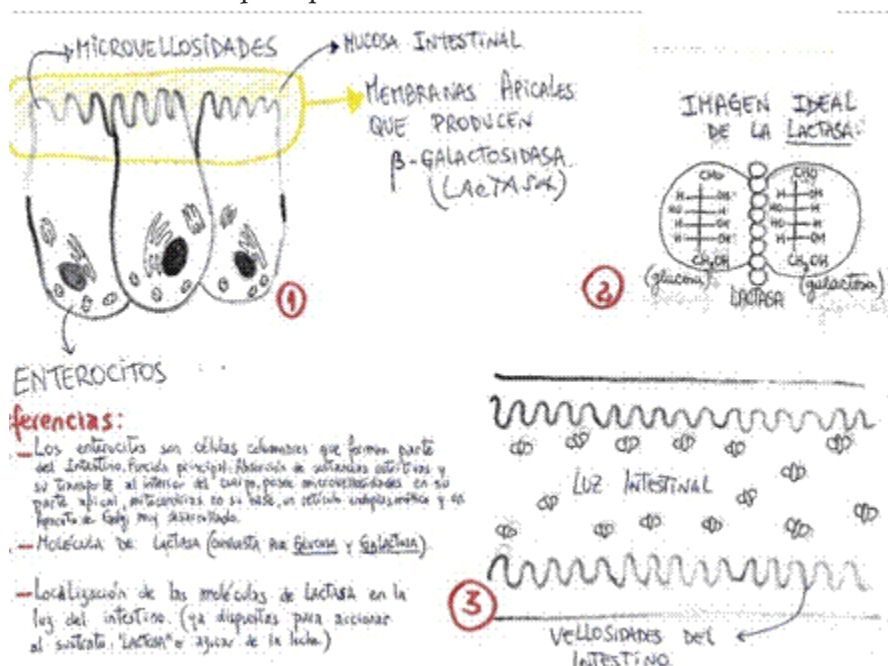 MICROVELLOSIDADES
MUCOSA INTESTINAL
MEMBRANAS APICALES
QUE PRODUCEN
β-GALACTOSIDASA
(LACTASA)
1
ENTEROCITOS
IMAGEN IDEAL
DE LA LACTASA:
CHO CHO
H OH H OH
HO H HO H
H OH HO H
H OH H OH
CH₂OH CH₂OH
(glucosa) (galactosa)
LACTASA
2
ferencias:
— Los enterocitos son células columnares que forman parte
del Intestino. Función principal: Absorción de sustancias nutritivas y
su transporte al interior del cuerpo, posee microvellosidades en su
parte apical, mitocondrias en su base, un retículo endoplasmático y un
Aparato de Golgi muy desarrollado.
— MOLÉCULA DE LACTASA (COMPUESTA POR GLUCOSA Y GALACTOSA)
— Localización de las moléculas de LACTASA en la
luz del intestino. (ya dispuestas para accionar
al sustrato, "LACTOSA" o azúcar de la leche)
LUZ INTESTINAL
3
VELLOSIDADES DEL
INTESTINO